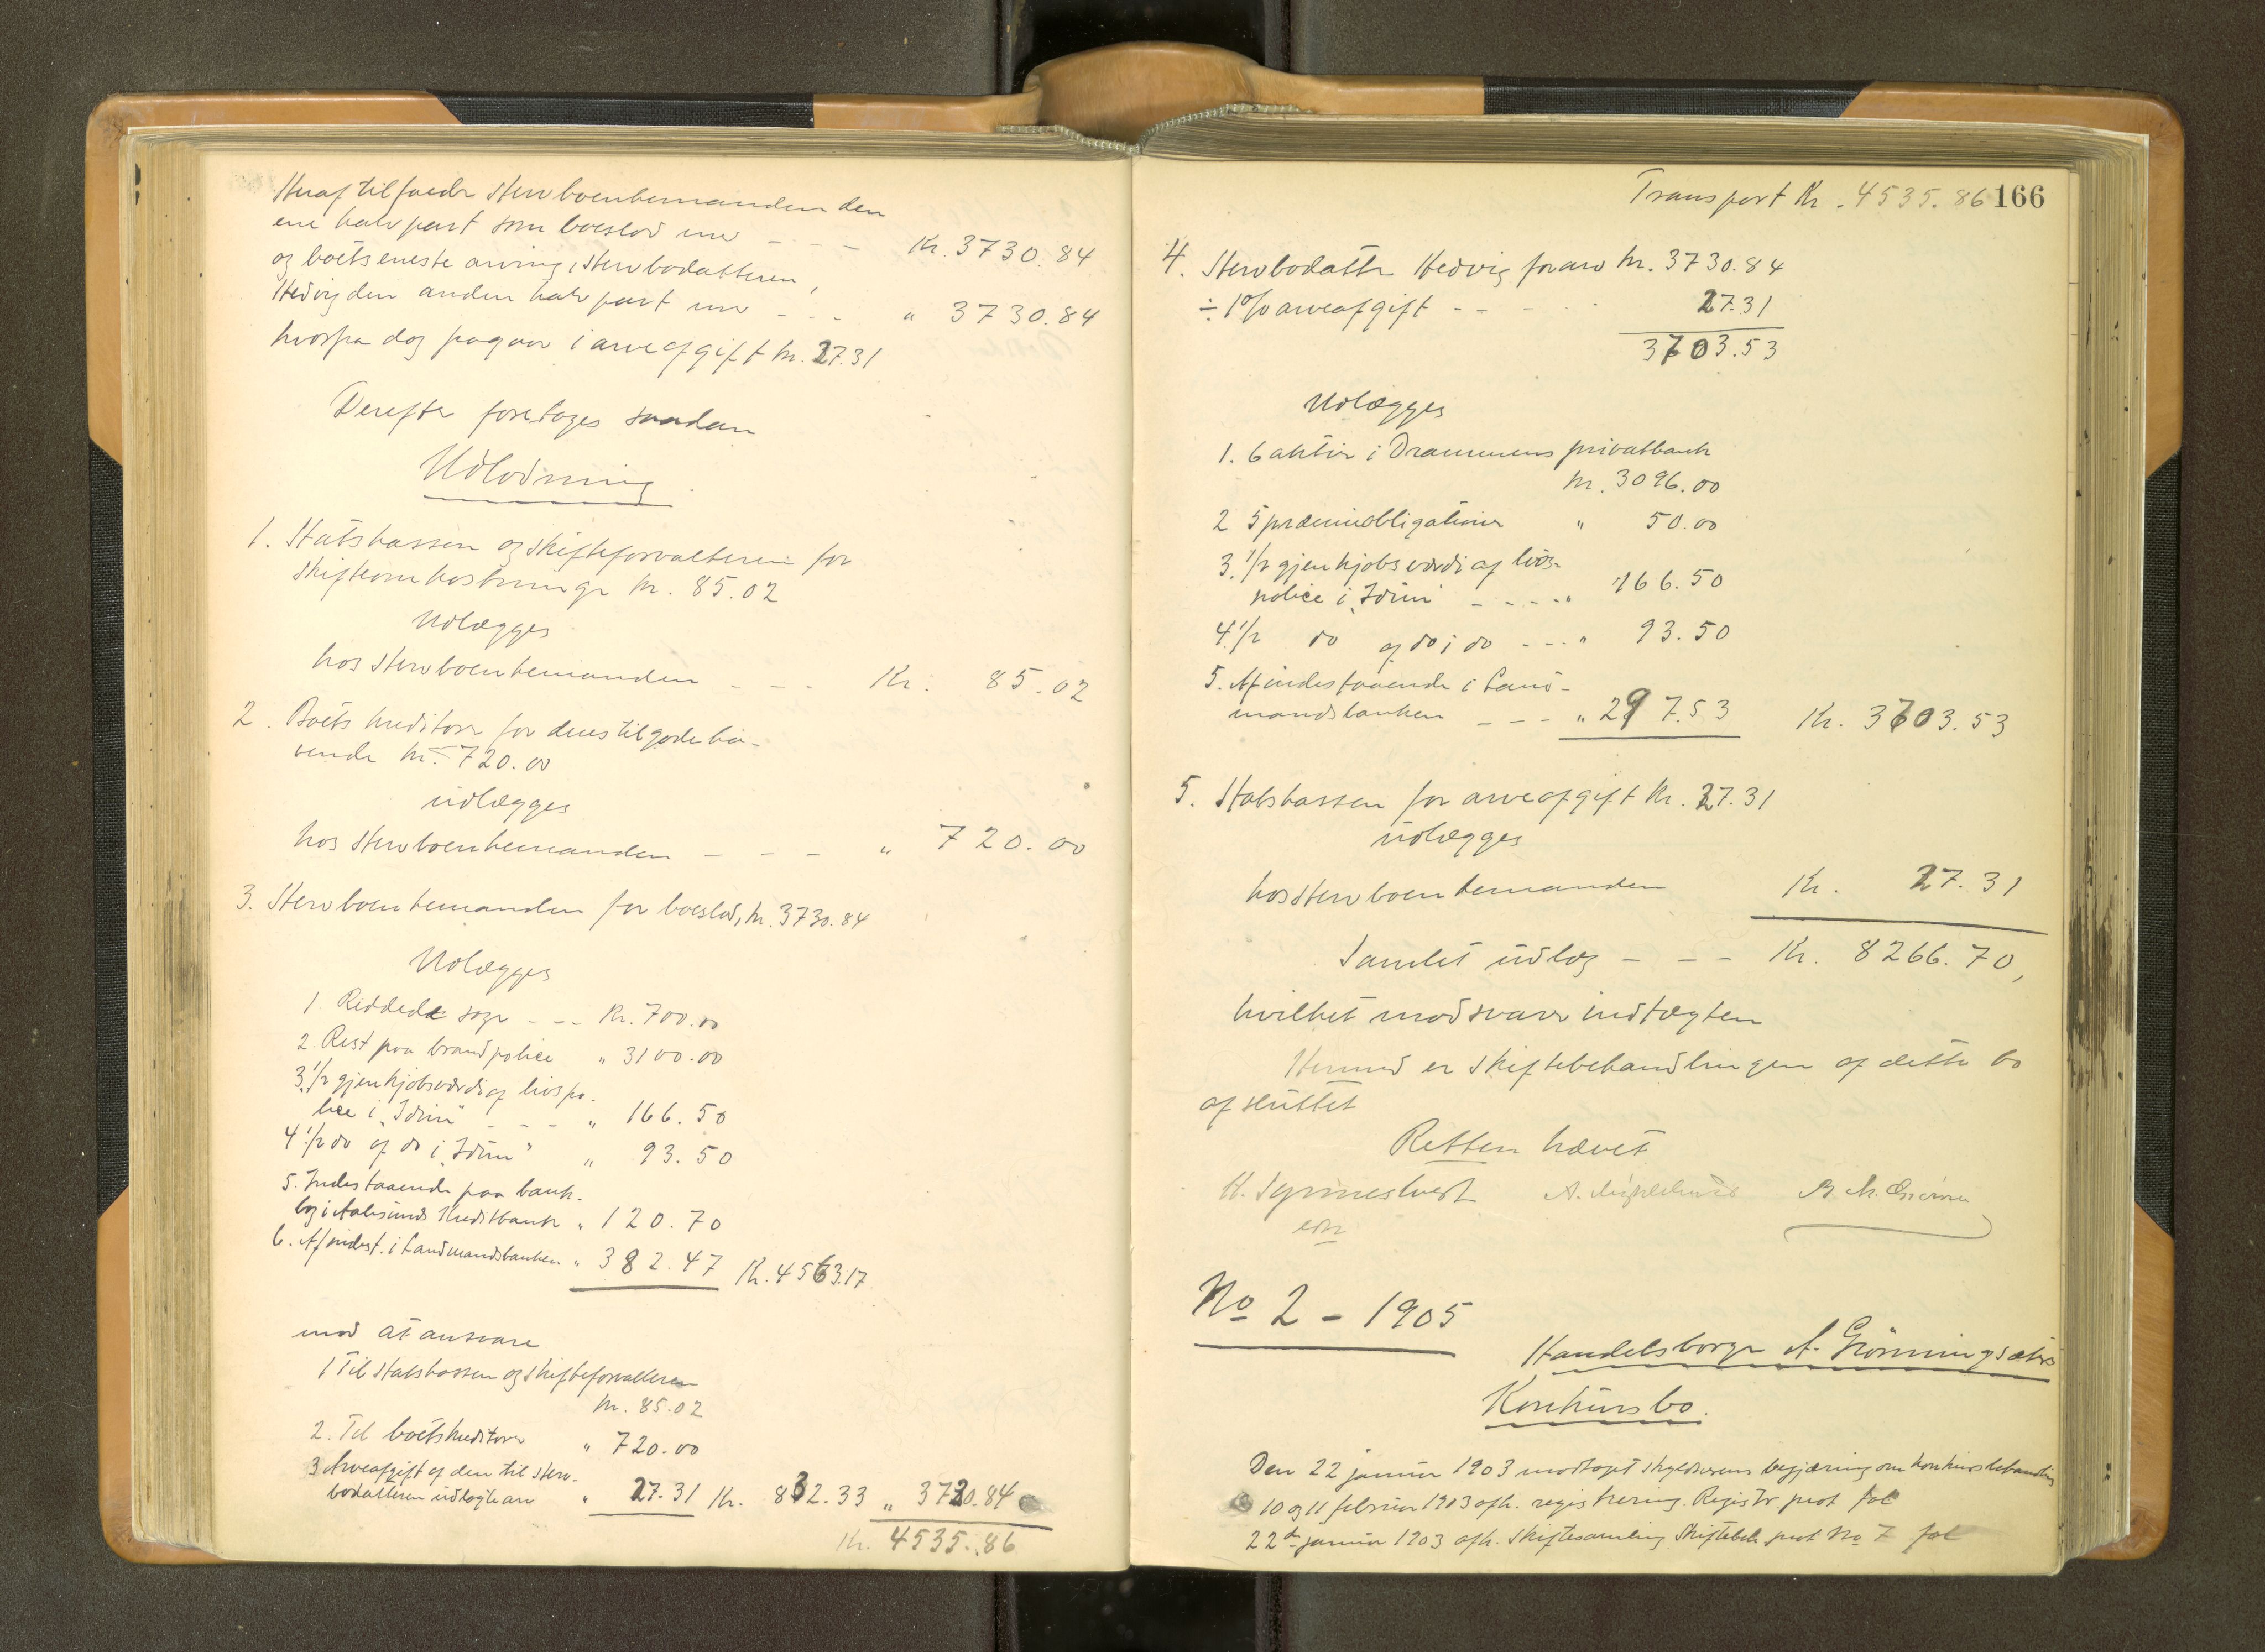 Heraf tilfalder Stervboenkemanden den
ene halvpart som boeslod med - - - Kr. 3730.84
og boets eneste arving, stervbodatteren,
Hedvig den anden halvpart med - - - " 3730.84
hvorpaa dog pagaar i arveafgift kr. 27.31
Derefter foretages saadan
Udlodning
1. Statskassen og skifteforvalteren for
skifteomkostninger kr. 85.02
Udlægges
hos stervboenkemanden - - - Kr. 85.02
2. Boets kreditorer for deres tilgodeha-
vende kr. 720.00
udlægges
hos stervboenkemanden - - - " 720.00
3. Stervboenkemanden for boeslod, kr. 3730.84
Udlægges
1. Reddede sager - - - Kr. 700.00
2. Rest paa brandpolice " 3100.00
3. 1/2 gjenkjøbsværdi af livspo-
lice i "Idun" - - - " 166.50
4 1/2 do af do i "Idun" " 93.50
5. Indestaaende paa bank-
bog i Aalesunds Kreditbank " 120.70
6. Af indest. i Landmandsbanken " 382.47 Kr. 4563.17
mod at ansvare
1 Til statskassen og skifteforvalteren
kr. 85.02
2. Til boets kreditorer " 720.00
3 Arveafgift af den til sterv-
bodatteren udlagte arv " 27.31 Kr. 832.33 " 3730.84
Kr. 4535.86
Transport Kr. 4535.86 166
4. Stervbodatter Hedvig for arv kr. 3730.84
÷ 1% arveafgift - - - 27.31
3703.53
Udlægges
1. 6 aktier i Drammens privatbank
kr. 3096.00
2 5 præmieobligationer " 50.00
3. 1/2 gjenkjøbsværdi af livs-
police i "Idun" - - - - " 166.50
4. 1/2 do af do i do - - - " 93.50
5. Af indestaaende i Land-
mandsbanken - - - " 297.53 Kr. 3703.53
5. Statskassen for arveafgift kr. 27.31
udlægges
hos stervboenkemanden Kr. 27.31
Samlet udlæg - - - Kr. 8266.70,
hvilket modsvarer indtægten
Hermed er skiftebehandlingen af dette bo
afsluttet
Retten hævet
No 2 - 1905
Handelsborger A. Grønningsæters
Konkursbo.
Den 22 januar 1903 modtaget skyldnerens begjæring om konkursbehandling
10 og 11 februar 1903 afh. registrering. Registr. prot fol
22de januar 1903 afh. skiftesamling Skiftebeh prot No 7 fol